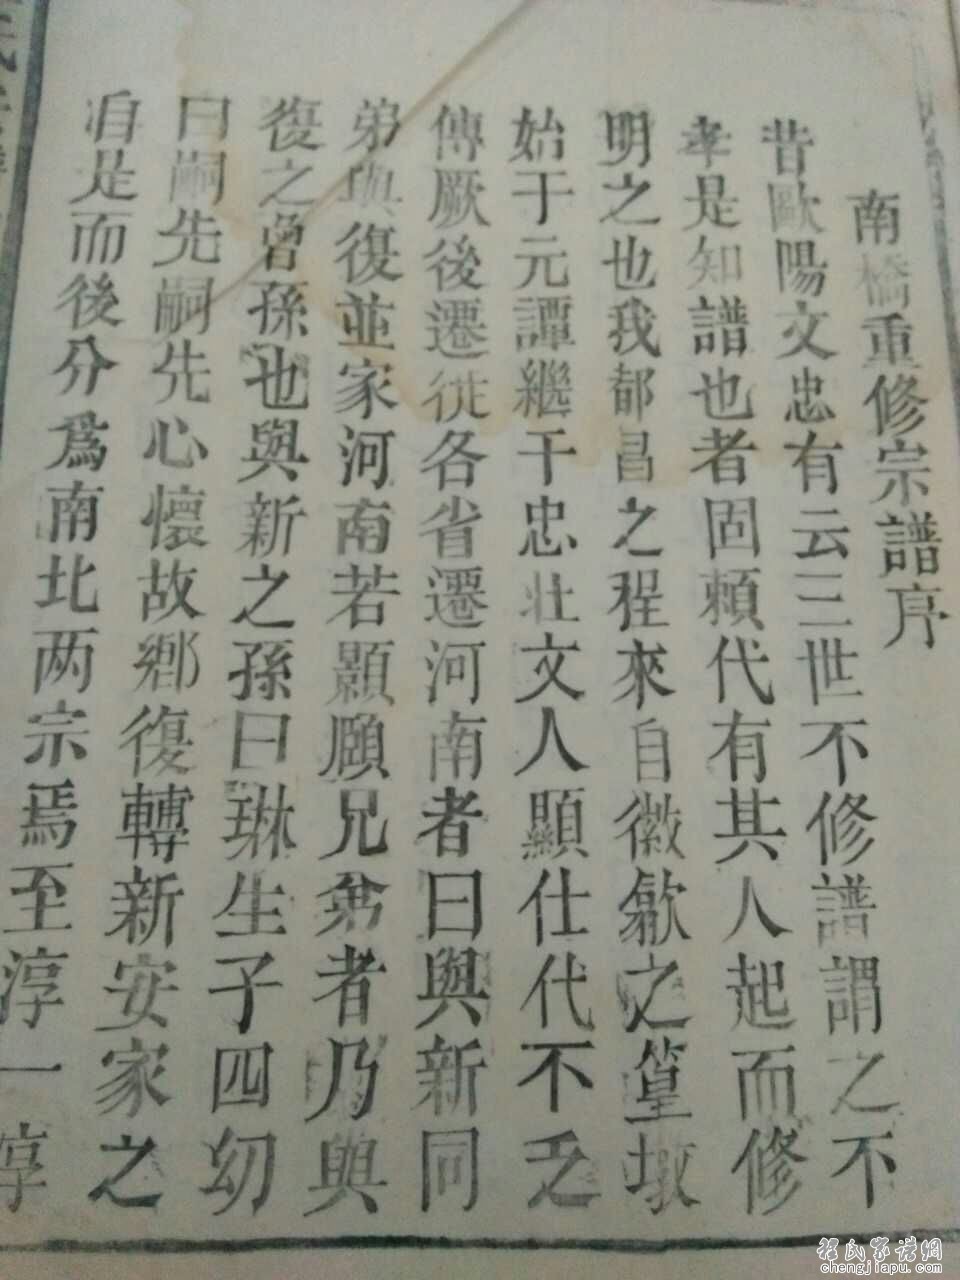 南橋重修宗譜序
昔歐陽文忠有云三世不修譜謂之不
孝是知譜也者固賴代有其人起而修
明之也我都昌之程來自徽歙之篁墩
始于元譚繼于忠壯文人顯仕代不乏
傳厥後遷徙各省遷河南者曰與新同
弟與復並家河南若顥頤兄弟者乃與
復之曾孫也與新之孫曰琳生子四幼
曰嗣先嗣先心懷故鄉復轉新安家之
自是而後分為南北两宗焉至淳一淳
程氏家谱網
chengjiapu.com